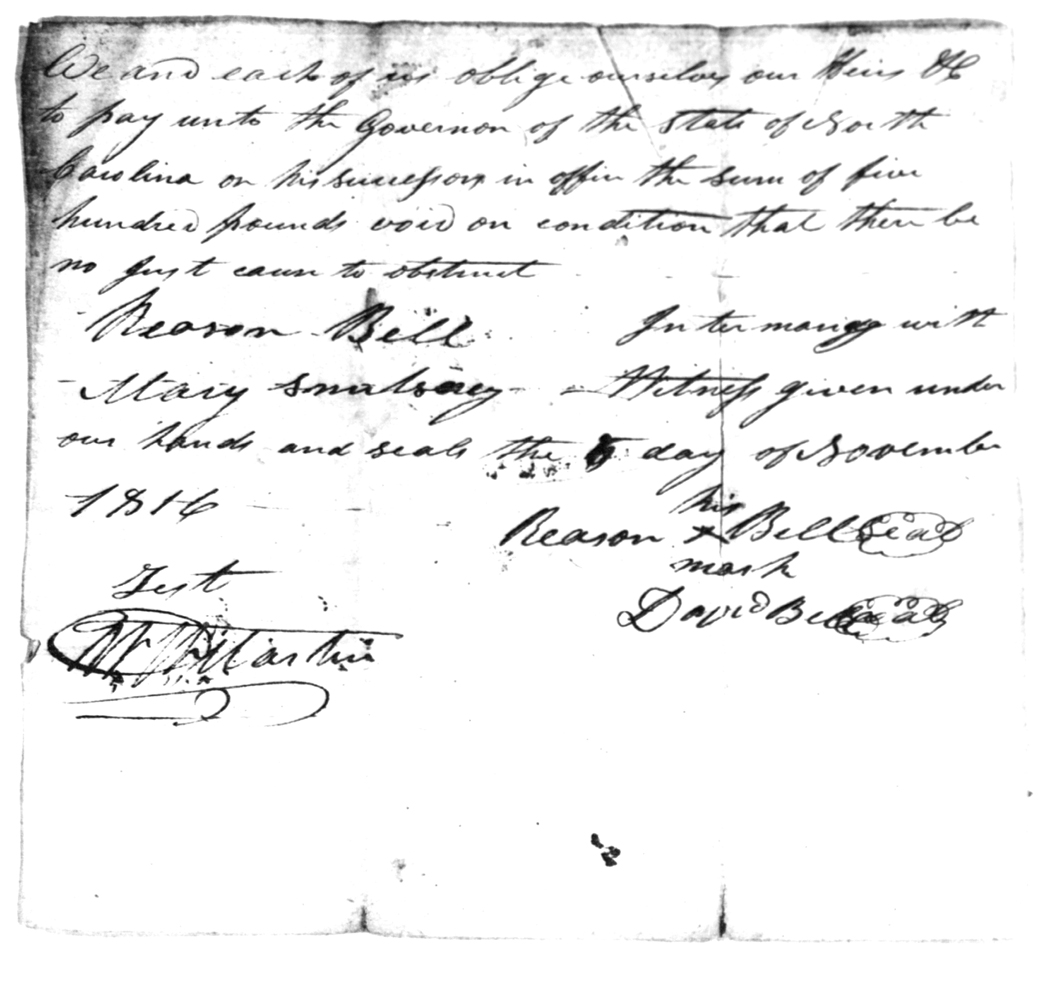 We and each of us oblige ourselves our Heirs &C
to pay unto the Governor of the State of North
Carolina or his successors in office the sum of five
hundred pounds void on condition that there be
no just cause to obstruct
Reason Bell Inter marry with
Mary - Witness given under
our hands and seals the 5 day of November
1816
his
Reason x Bell Seal
mark
David Bell Seal
Test
Martin